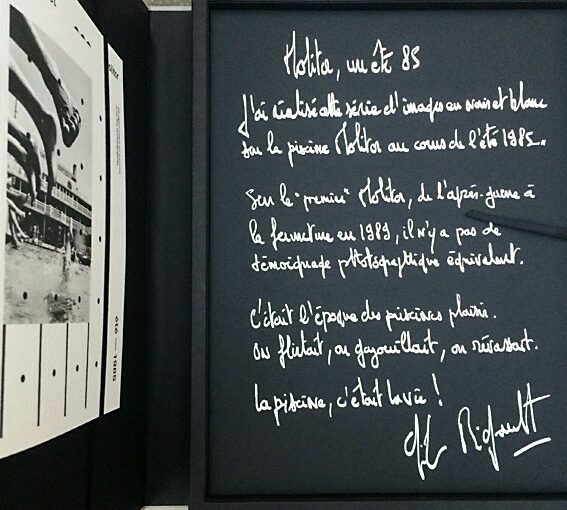 Molitor, un été 85
J'ai réalisé cette série d'images en noir et blanc
sur la piscine Molitor au cours de l'été 1985.
Sur le "premier" Molitor, de l'après-guerre à
la fermeture en 1989, il n'y a pas de
témoignage photographique équivalent.
C'était l'époque des piscines plaisir.
On flirtait, on gazouillait, on rêvassait.
La piscine, c'était la vie !
Gil Rigoulet
été — 1985